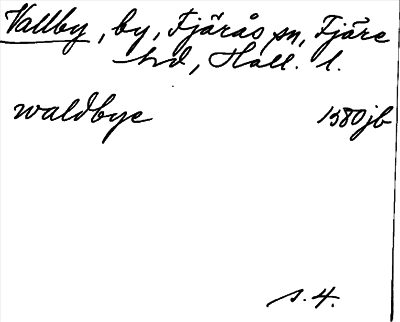 Vallby, by, Fjärås sn, Fjäre
hd, Hall. l.
waldbye 1580 jb
s. 4.